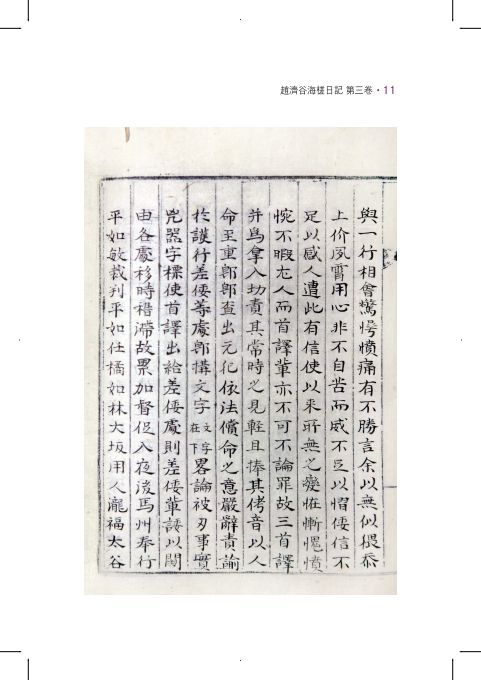 趙濟谷海槎日記 第三卷・11
與一行相會驚愕憤痛有不勝言余以無似猥忝
上价夙宵用心非不自苦而威不足以慴倭信不
足以感人遭此有信使以來所無之變怪慚愧憤
惋不暇尤人而首譯輩亦不可不論罪故三首譯
并爲拿入切責其常時之見輕且捧其侉音以人
命至重卽卽查出元犯依法償命之意嚴辭責諭
於護行差倭等處卽搆文字文字在下畧論被刃事實
兇器字樣使首譯出給差倭處則差倭輩諉以關
由各處移時稽滯故累加督促入夜後馬州奉行
平如敏裁判平如任橘如林大坂用人龐福太谷